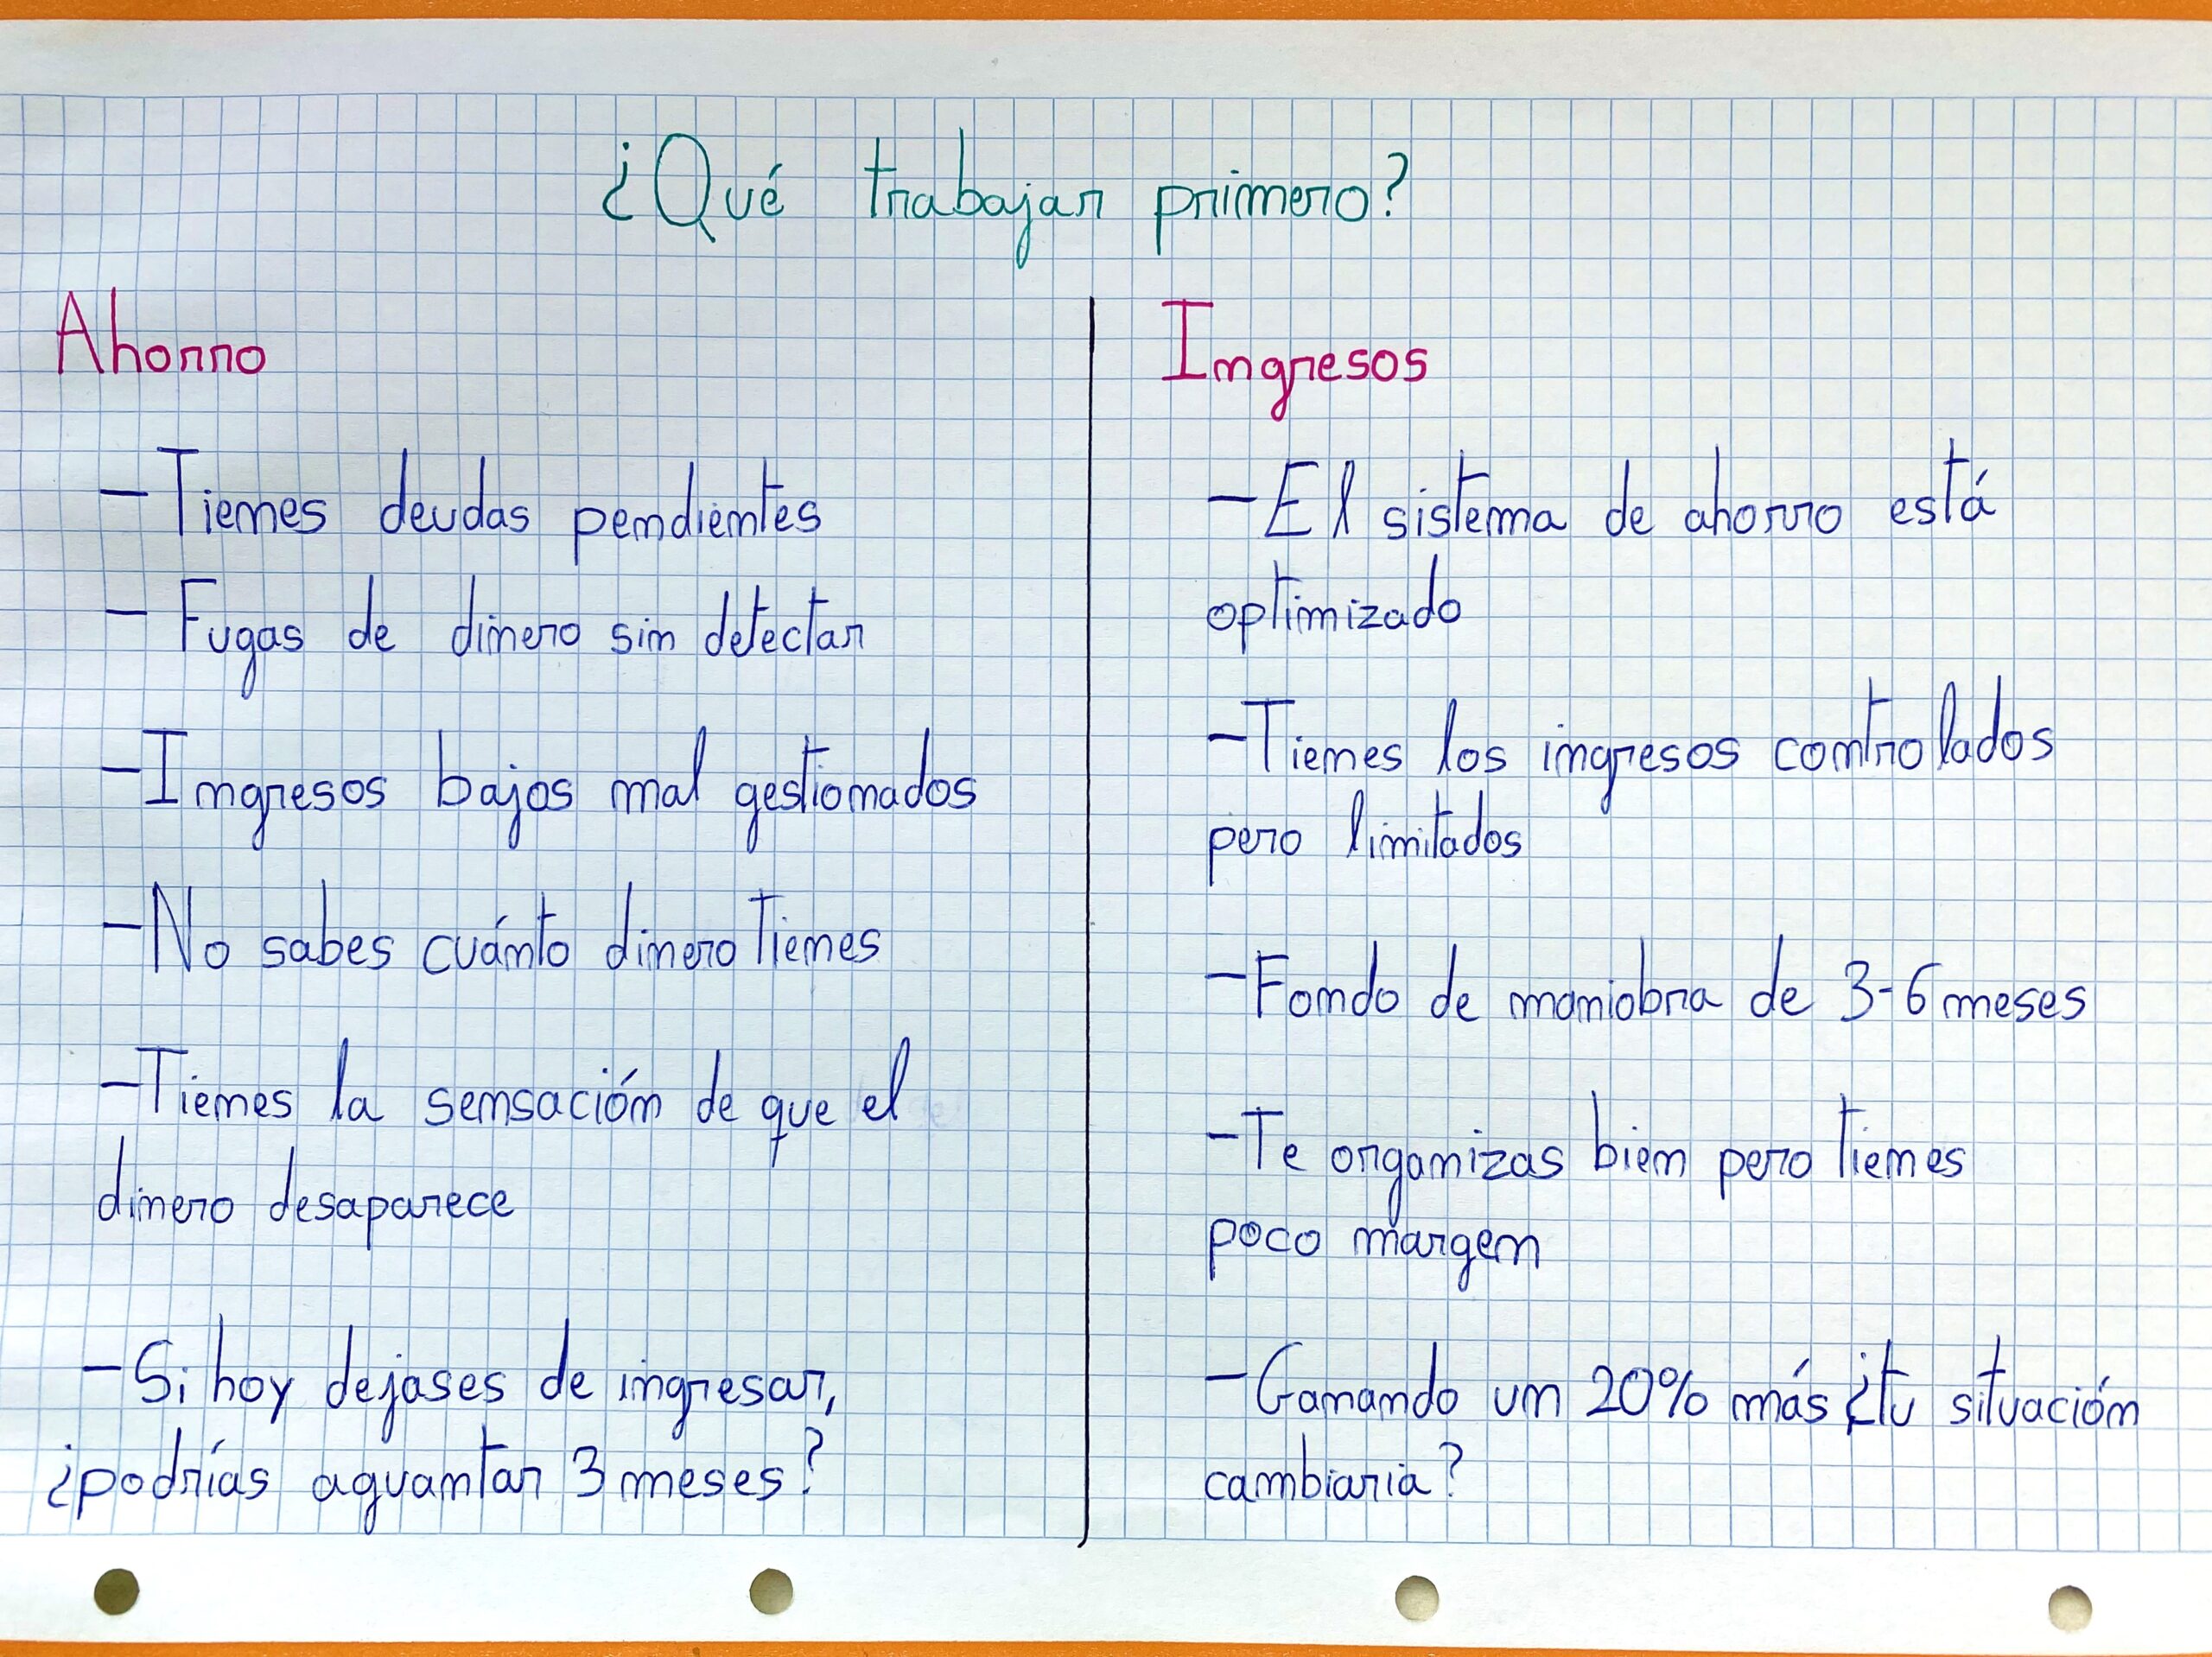 ¿Qué trabajar primero?
Ahorro
-Tienes deudas pendientes
- Fugas de dinero sin detectar
-Ingresos bajos mal gestionados
-No sabes cuánto dinero tienes
-Tienes la sensación de que el
dinero desaparece
-Si hoy dejases de ingresar,
¿podrías aguantar 3 meses?
Ingresos
-El sistema de ahorro está
optimizado
-Tienes los ingresos controlados
pero limitados
-Fondo de maniobra de 3-6 meses
-Te organizas bien pero tienes
poco margen
-Ganando un 20% más ¿tu situación
cambiaria?